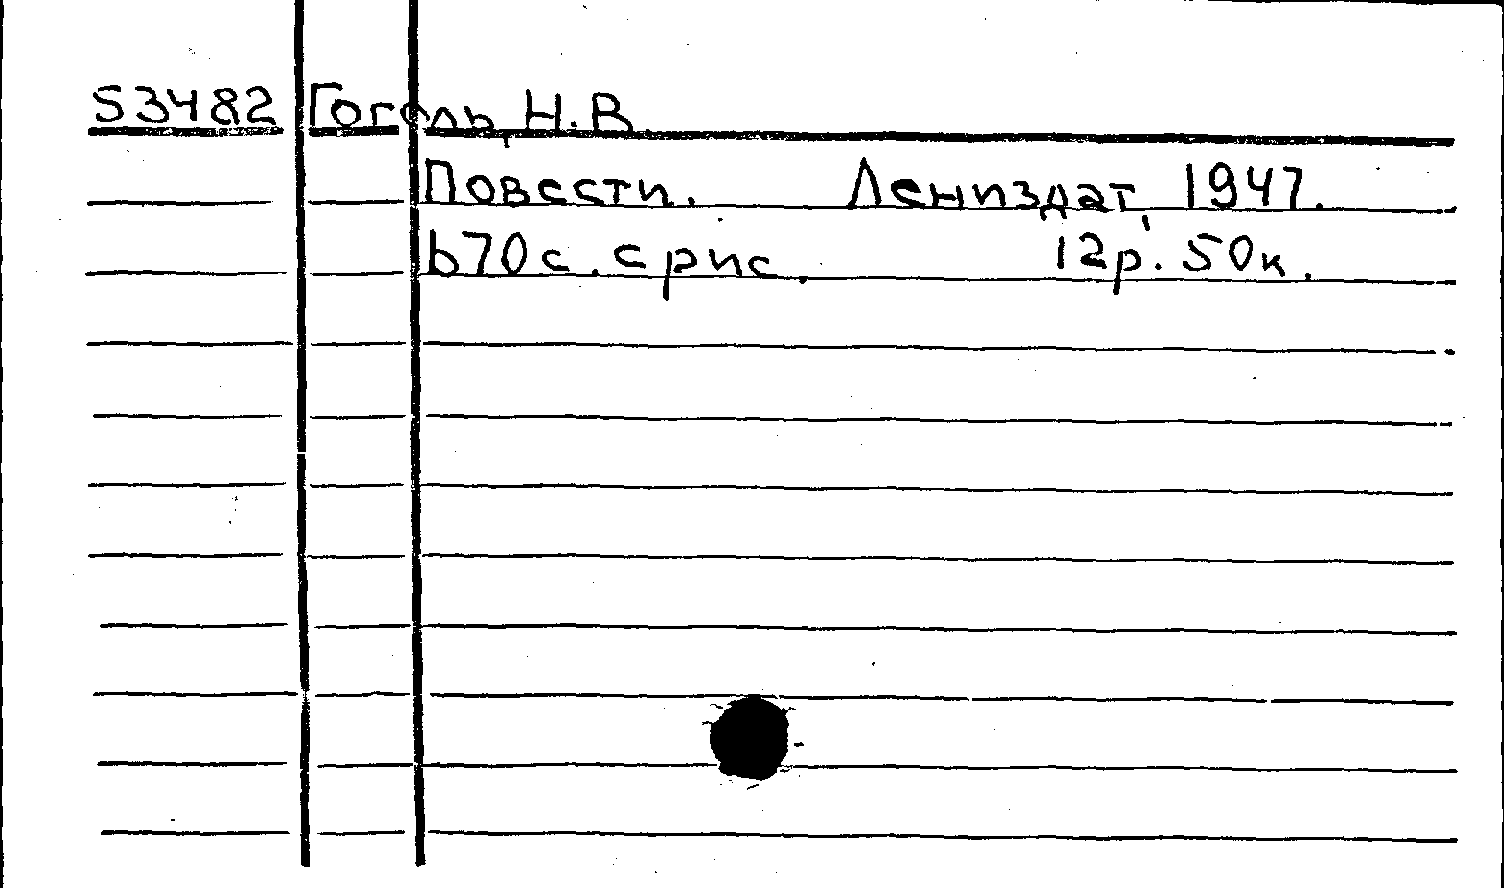 53482 Гоголь, Н.В.
Повести. Лениздат, 1947.
670с. с рис. 12р. 50к.